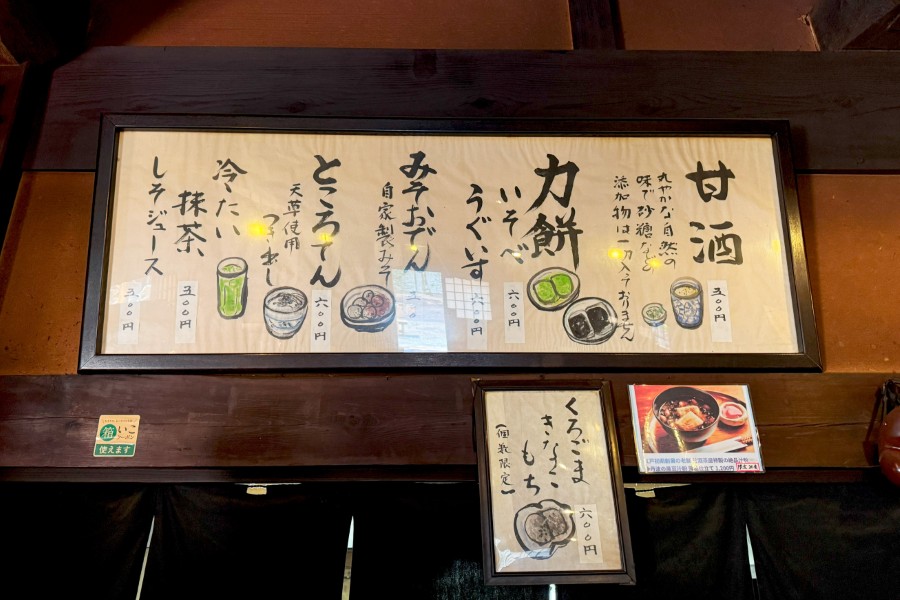 甘酒
丸やかな自然の
味で砂糖など
添加物は一切入っておりません
五〇〇円
力餅
いそべ
うぐいす
六〇〇円
六〇〇円
みそおでん
自家製みそ
ところてん
天草使用
つき出し
六〇〇円
冷たい
抹茶、
しそジュース
五〇〇円
五〇〇円
くろごま
きなこ
もち
(個数限定)
六〇〇円
いこ
クーポン
使えます